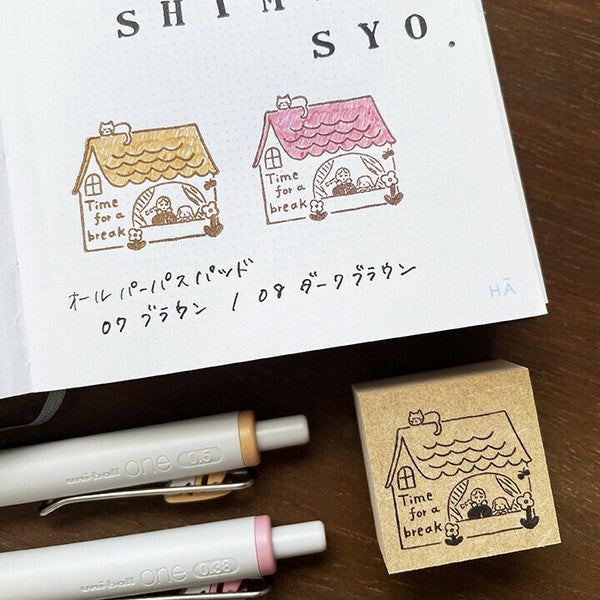 SHIM
SYO.
Time
for a
break
Time
for a
break
オールパーパスパッド
07 ブラウン / 08 ダークブラウン
HĀ
uni-ball one 0.5
uni-ball one 0.38
Time
for a
break